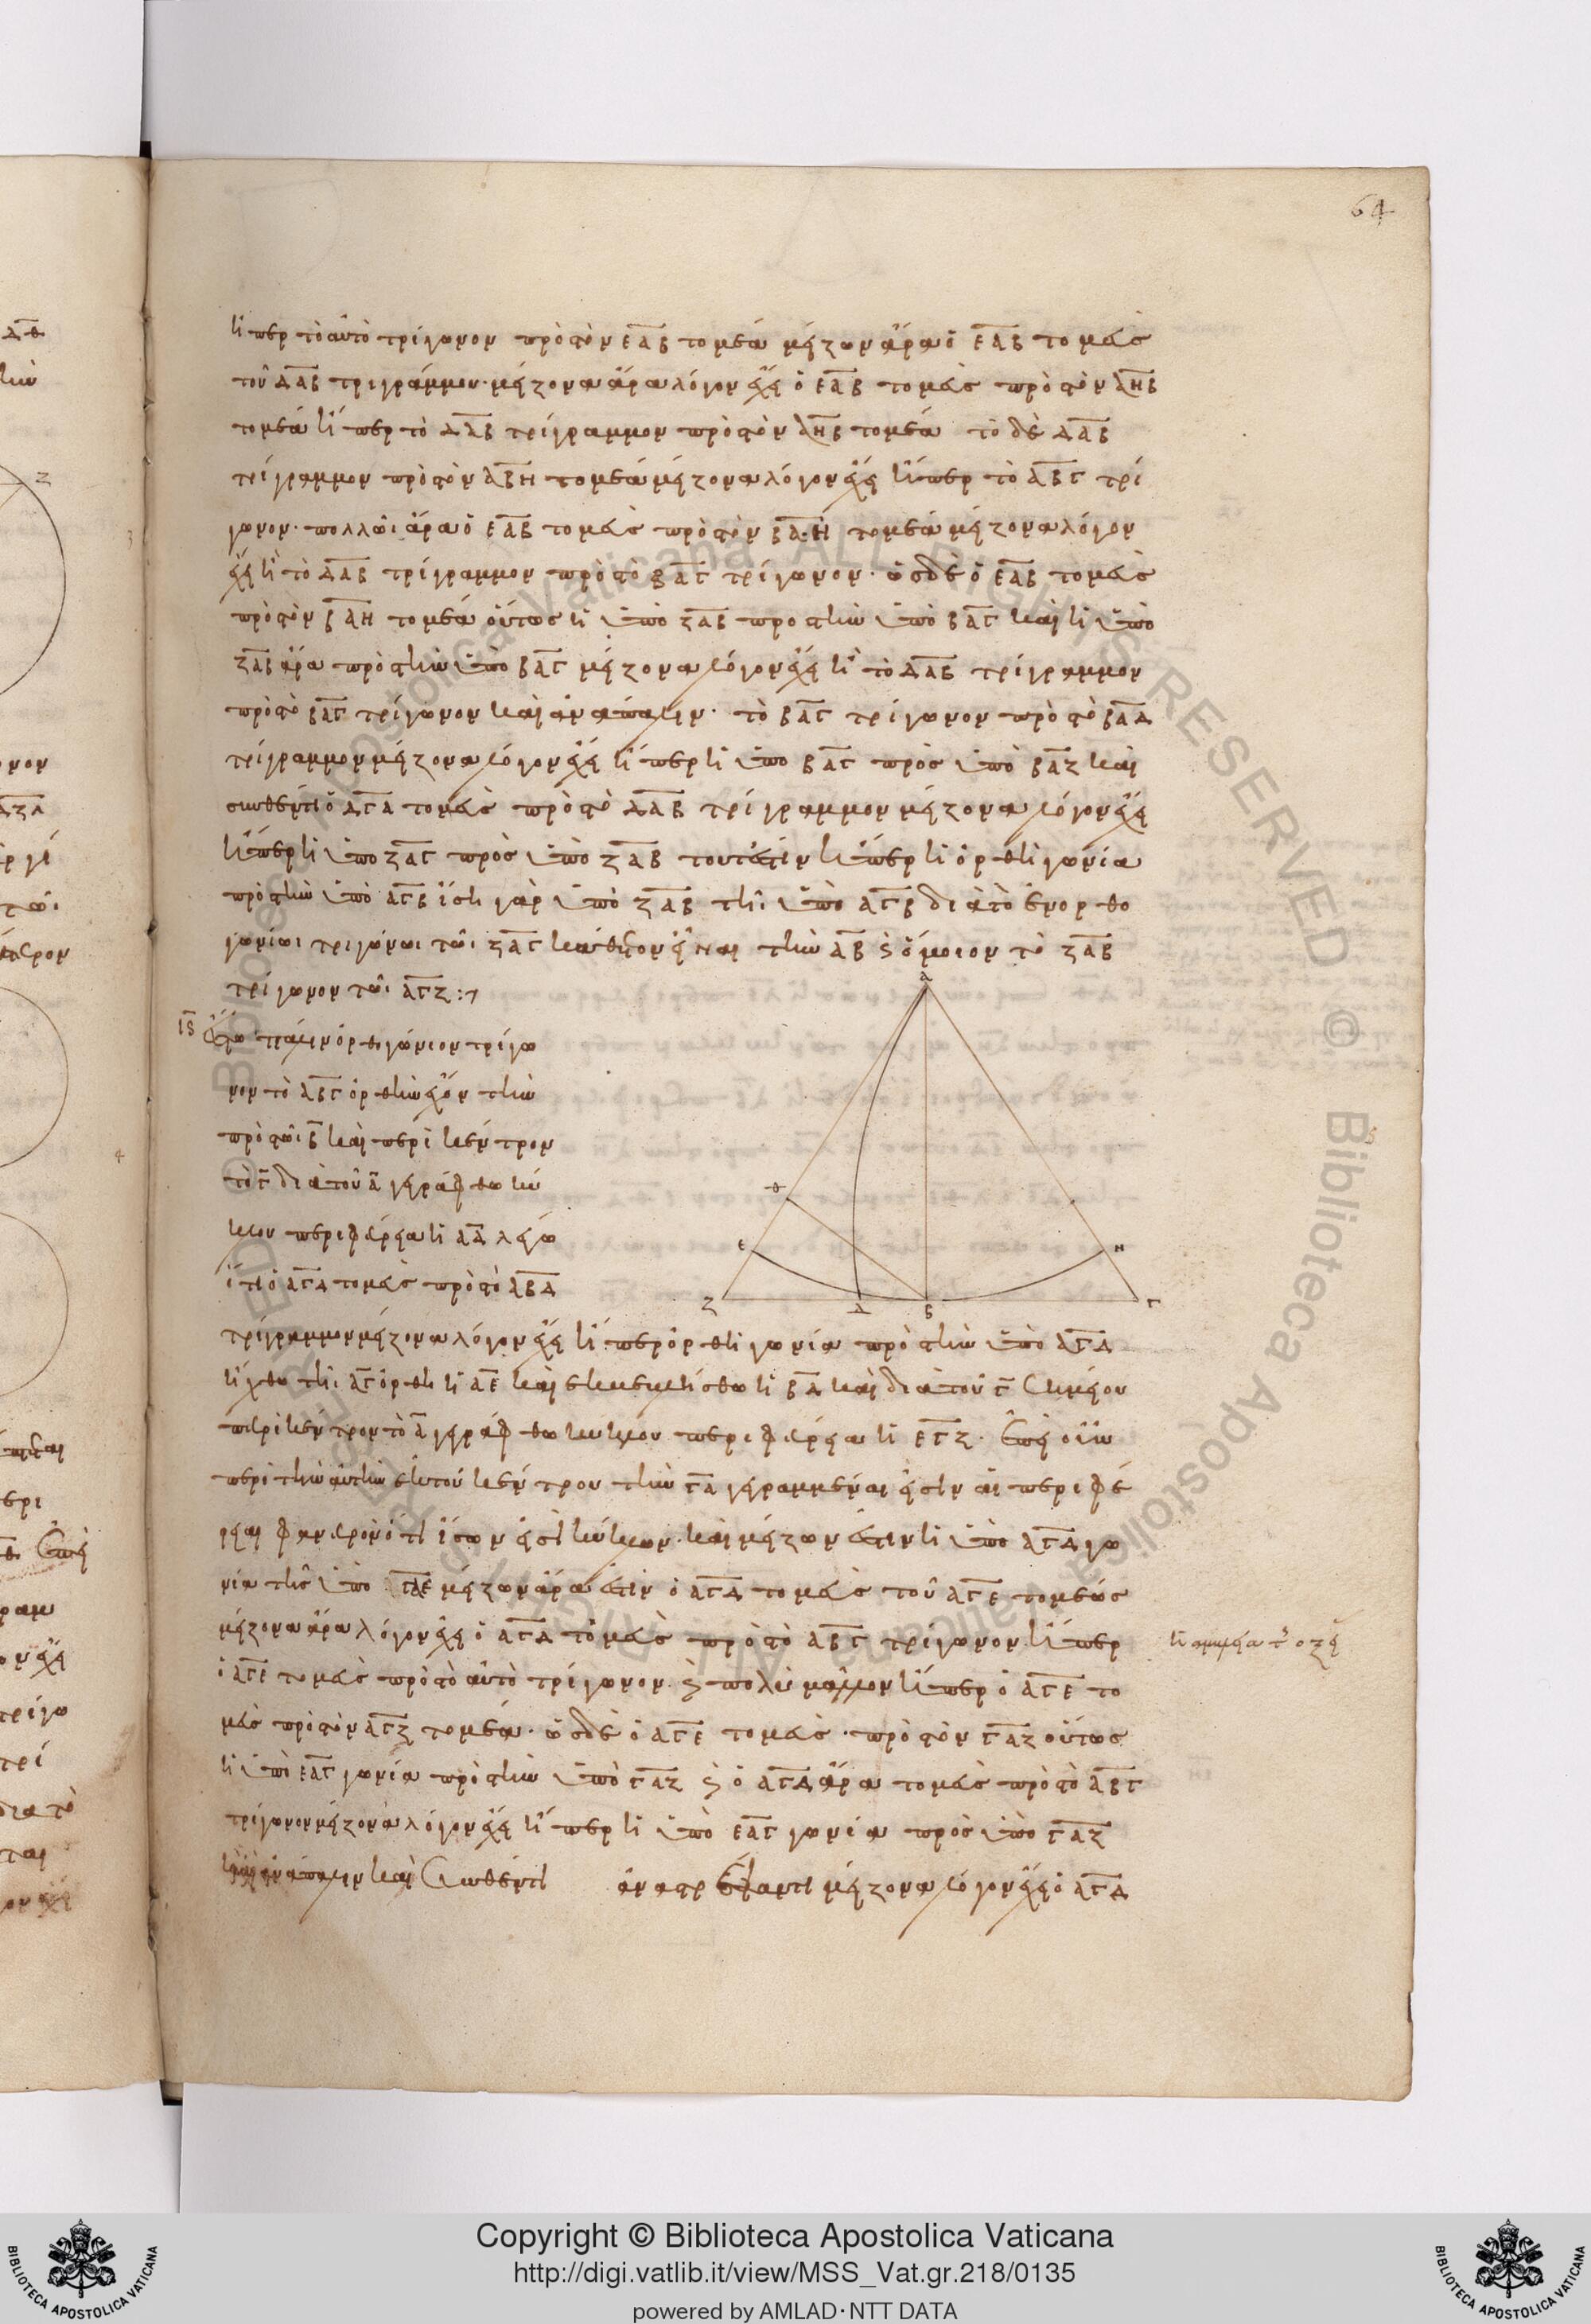 64
ἤπερ τὸ αὐτὸ τρίγωνον πρὸς τὸν ΕΑΒ τομέα μείζων ἄρα ὁ ΕΑΒ τομεὺς
τοῦ ΔΑΒ τριγράμμου· μείζονα ἄρα λόγον ἔχει ὁ ΕΑΒ τομεὺς πρὸς τὸν ΑΗΒ
τομέα ἤπερ τὸ ΔΑΒ τρίγραμμον πρὸς τὸν ΑΗΒ τομέα τὸ δὲ ΔΑΒ
τρίγραμμον πρὸς τὸν ΑΒΗ τομέα μείζονα λόγον ἔχει ἤπερ τὸ ΑΒΓ τρί
γωνον· πολλῶι ἄρα ὁ ΕΑΒ τομεὺς πρὸς τὸν ΒΑΗ τομέα μείζονα λόγον
ἔχει ἢ τὸ ΔΑΒ τρίγραμμον πρὸς τὸ ΒΑΓ τρίγωνον· ὡς δὲ ὁ ΕΑΒ τομεὺς
πρὸς τὸν ΒΑΗ τομέα οὕτως ἡ ὑπὸ ΖΑΒ προς τὴν ὑπὸ ΒΑΓ καὶ ἡ ὑπὸ
ΖΑΒ ἄρα πρὸς τὴν ὑπὸ ΒΑΓ μείζονα λόγον ἔχει ἢ τὸ ΔΑΒ τρίγραμμον
πρὸς τὸ ΒΑΓ τρίγωνον καὶ ἀνάπαλιν· τὸ ΒΑΓ τρίγωνον πρὸς τὸ ΒΑΔ
τρίγραμμον μείζονα λόγον ἔχει ἤπερ ἡ ὑπο ΒΑΓ πρὸς ὑπὸ ΒΑΖ καὶ
συνθέντι ὁ ΔΓΑ τομεὺς πρὸς τὸ ΔΑΒ τρίγραμμον μείζονα λόγον ἔχει
ἤπερ ἡ ὑπο ΖΑΓ πρὸς ὑπὸ ΖΑΒ τουτέστιν ἤπερ ἡ ὀρθὴ γωνία
πρὸς τὴν ὑπὸ ΑΓΒ ἴση γὰρ ὑπὸ ΖΑΒ τῆι ὑπὸ ΑΓΒ διὰ τὸ ἐν ὀρθο
γωνίωι τριγώνωι τῶι ΖΑΓ κάθετον εἶναι τὴν ΑΒ καὶ ὅμοιον τὸ ΖΑΒ
τρίγωνον τῶι ΑΓΖ :~
ις ἔστω πάλιν ὀρθογώνιον τρίγω
νον τὸ ΑΒΓ ὀρθὴν ἔχον τὴν
πρὸς τῶι Β καὶ περὶ κέντρον
τὸ Γ διὰ τοῦ Α γεγράφθω κύ
κλου περιφέρεια ἡ ΑΔ λέγω
ὅτι ὁ ΑΓΔ τομεὺς πρὸς τὸ ΑΒΔ
τρίγραμμον μείζονα λόγον ἔχει ἤπερ ὀρθὴ γωνία πρὸς τὴν ὑπὸ ΑΓΔ
ἤχθω τῆι ΑΓ ὀρθὴ ἡ ΑΕ καὶ ἐκβεβλήσθω ἡ ΒΔ καὶ διὰ τοῦ Γ σημείου
περὶ κέντρον τὸ Α γεγράφθω κύκλου περιφέρεια ἡ ΕΓΖ· ἐπεὶ οὖν
περὶ τὴν αὐτὴν ἐκ τοῦ κέντρου τὴν ΓΑ γεγραμμέναι εἰσὶν αἱ περιφέ
ρειαι φανερὸν ὅτι ἴσων εἰσὶ κύκλων· καὶ μείζων ἐστιν ἡ ὑπὸ ΑΓΔ γω
νία τῆς ὑπὸ ΓΑΕ μείζων ἄρα ἐστὶν ὁ ΑΓΔ τομεὺς τοῦ ΑΓΕ τομέως
μείζονα ἄρα λόγον ἔχει ὁ ΑΓΔ τομεὺς πρὸς τὸ ΑΒΓ τρίγωνον ἤπερ
ὁ ΑΓΕ τομεὺς πρὸς τὸ αὐτὸ τρίγωνον· καὶ πολὺ μᾶλλον ἤπερ ὁ ΑΓΕ το
μεὺς πρὸς τὸν ΑΓΖ τομέα· ὡς δὲ ὁ ΑΓΕ τομεὺς πρὸς τὸν ΓΑΖ οὕτως
ἡ ὑπὸ ΕΑΓ γωνία πρὸς τὴν ὑπὸ ΓΑΖ καὶ ὁ ΑΓΔ ἄρα τομεὺς πρὸς τὸ ΑΒΓ
τρίγωνον μείζονα λόγον ἔχει ἤπερ ἡ ὑπὸ ΕΑΓ γωνία πρὸς ὑπὸ ΓΑΖ
ἀνάπαλιν καὶ συνθέντι ἀναστρέψαντι μείζονα λόγον ἔχει ὁ ΑΓΔ
Α
Θ
Ε Η
Ζ Δ Β Γ
Copyright © Biblioteca Apostolica Vaticana
http://digi.vatlib.it/view/MSS_Vat.gr.218/0135
powered by AMLAD·NTT DATA
BIBLIOTECA APOSTOLICA VATICANA
BIBLIOTECA APOSTOLICA VATICANA